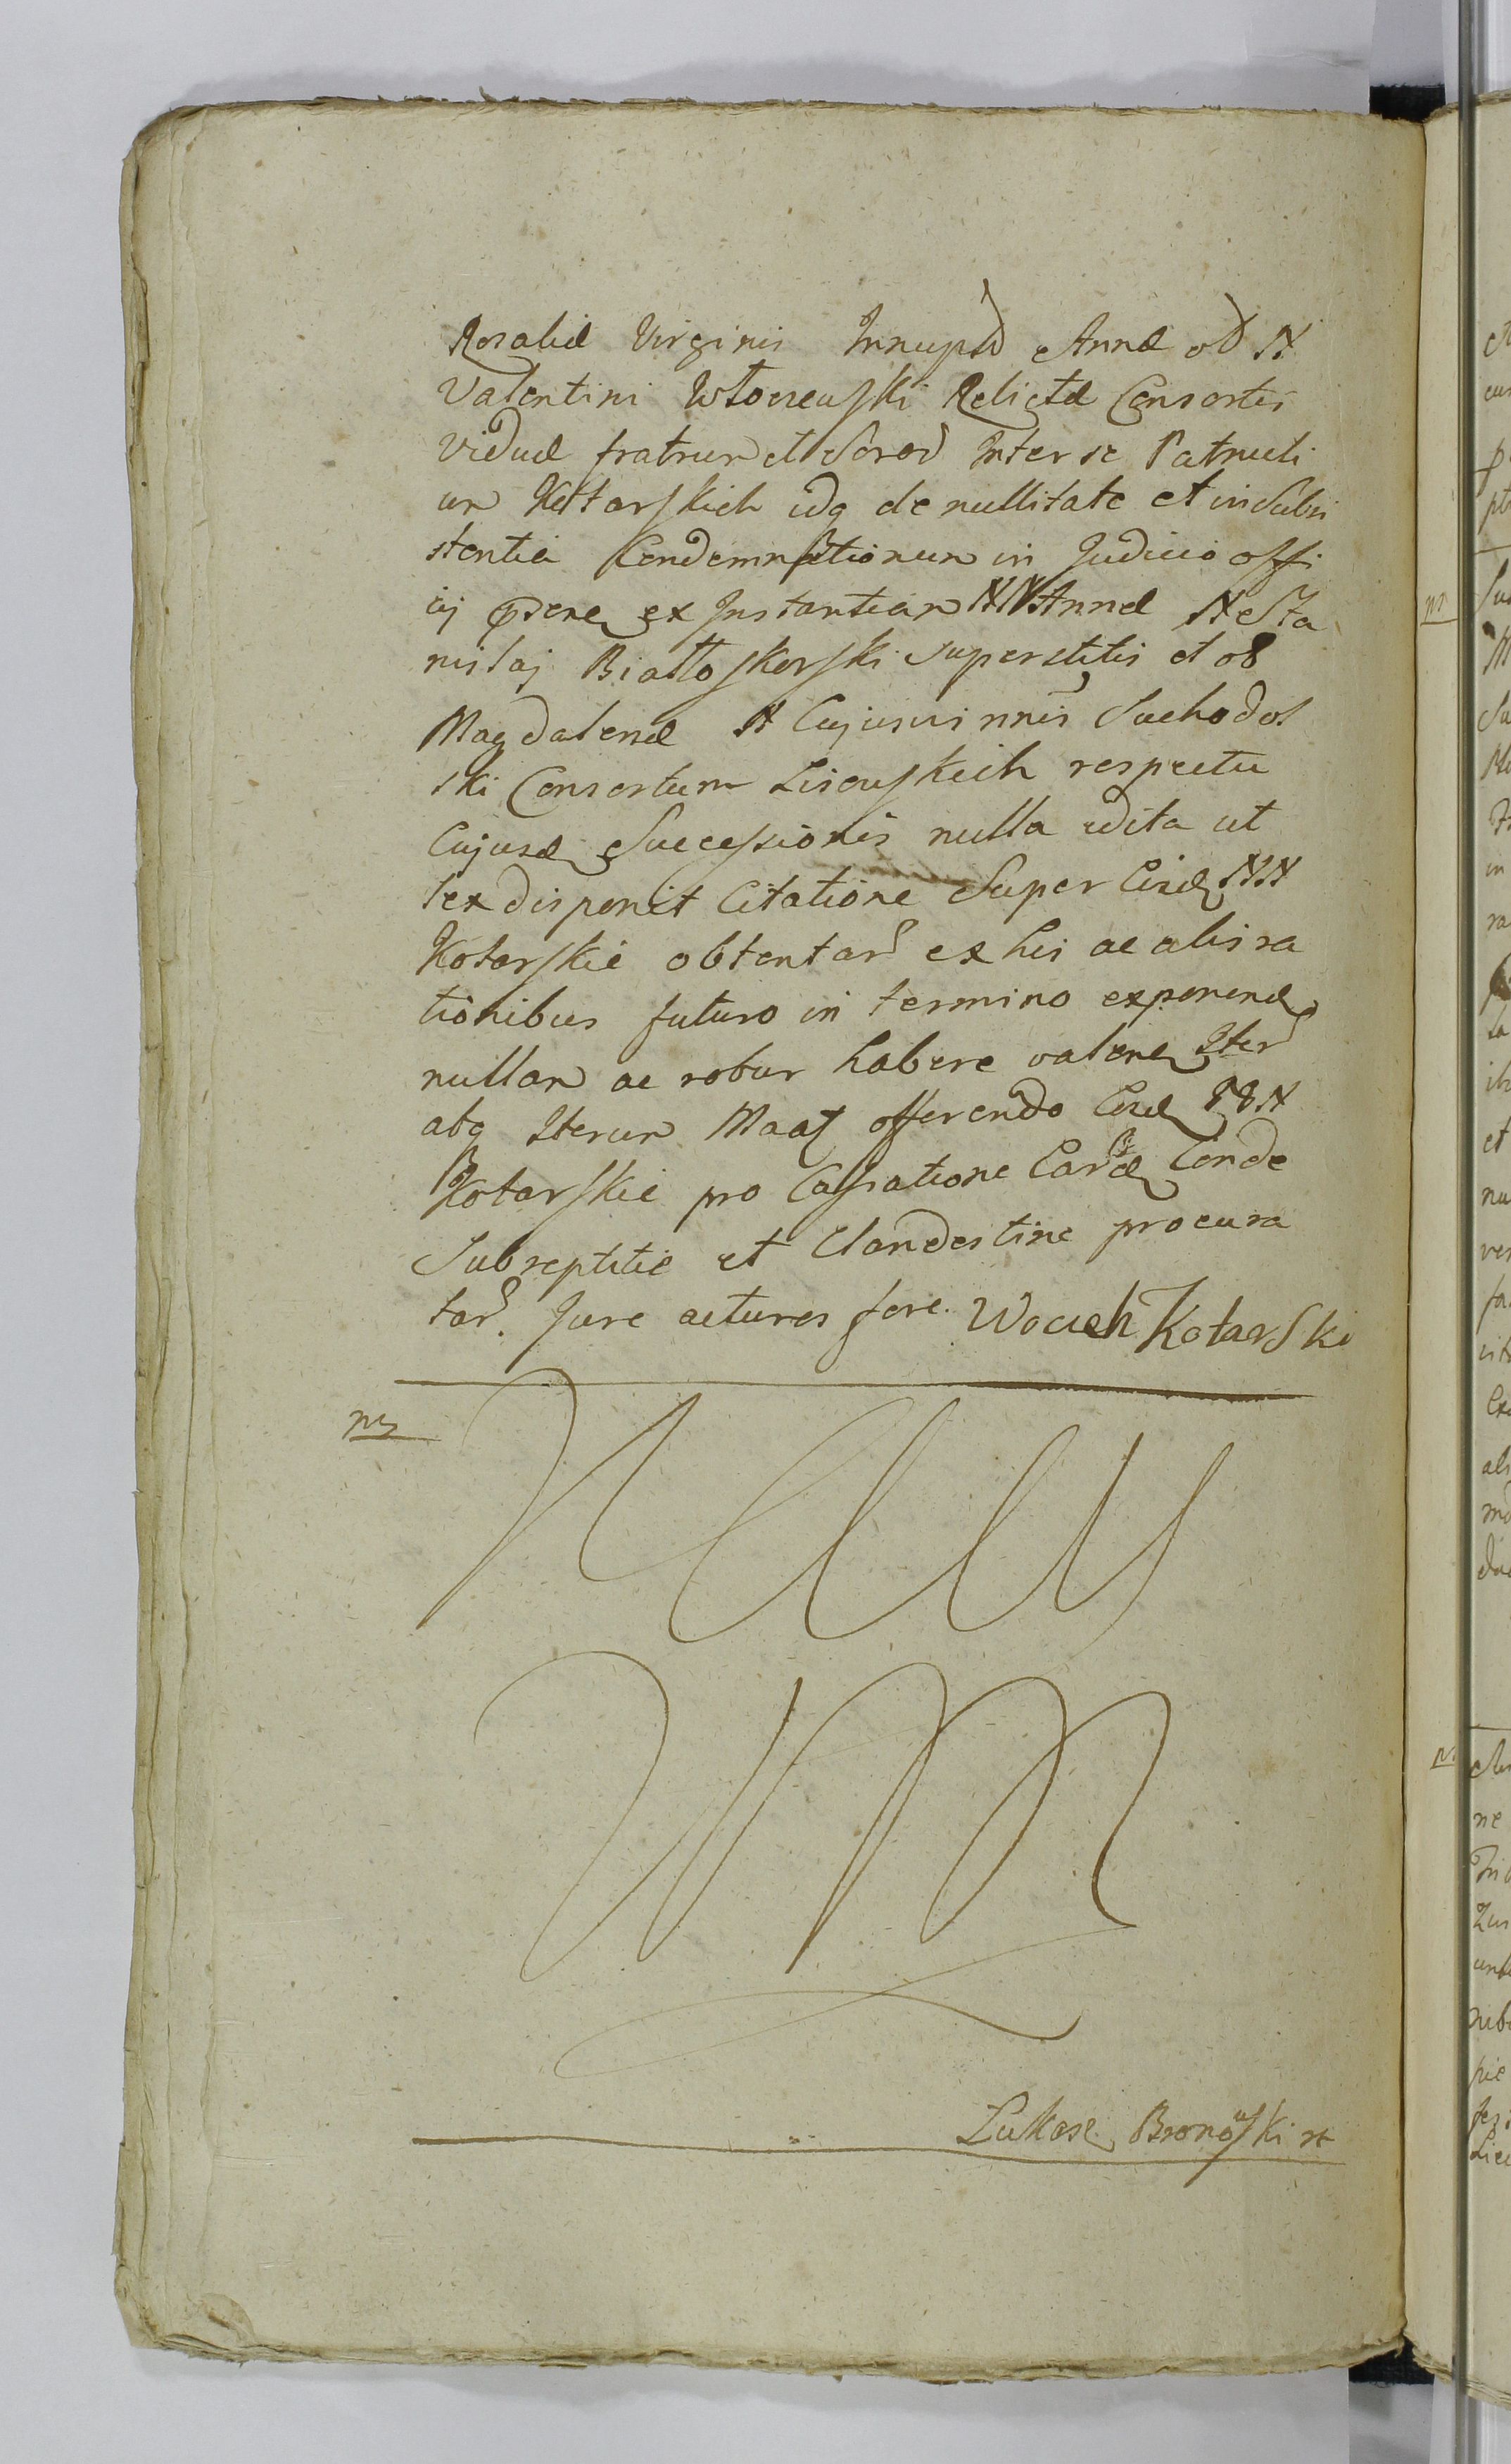 Rosaliæ Virginis Innuptæ Annæ od N
Valentini Włoczewski Relictæ Consortis
Viduæ fratrum et Soror Inter se Patrueli
um Kotarskich idq de nullitate et insubsi
stentia Condemnationum in Judicio offi
ij ex Instantiar NN Annæ N Sta
nislaj Białłoskorski superstitis et ob
Magdalenæ N Cujusvis nnis Suchodol
ski Consortum Lisowskich respectu
Cujusd Successionis nulla edita ut
lex disponit Citatione Super Eisd NN
Kotarskie obtentar ex his ac aliis ra
tionibus futuro in termino exponend
nullar ac robur habere valen Iter
atq Iterum Maaz offerendo Eosd GG N
Kotarskie pro Cassatione Eard Conde
Subreptitie et Clandestine procura
tar. Jure acturos fore. Wociech Kotarski
ns
Lukasz Bronowski